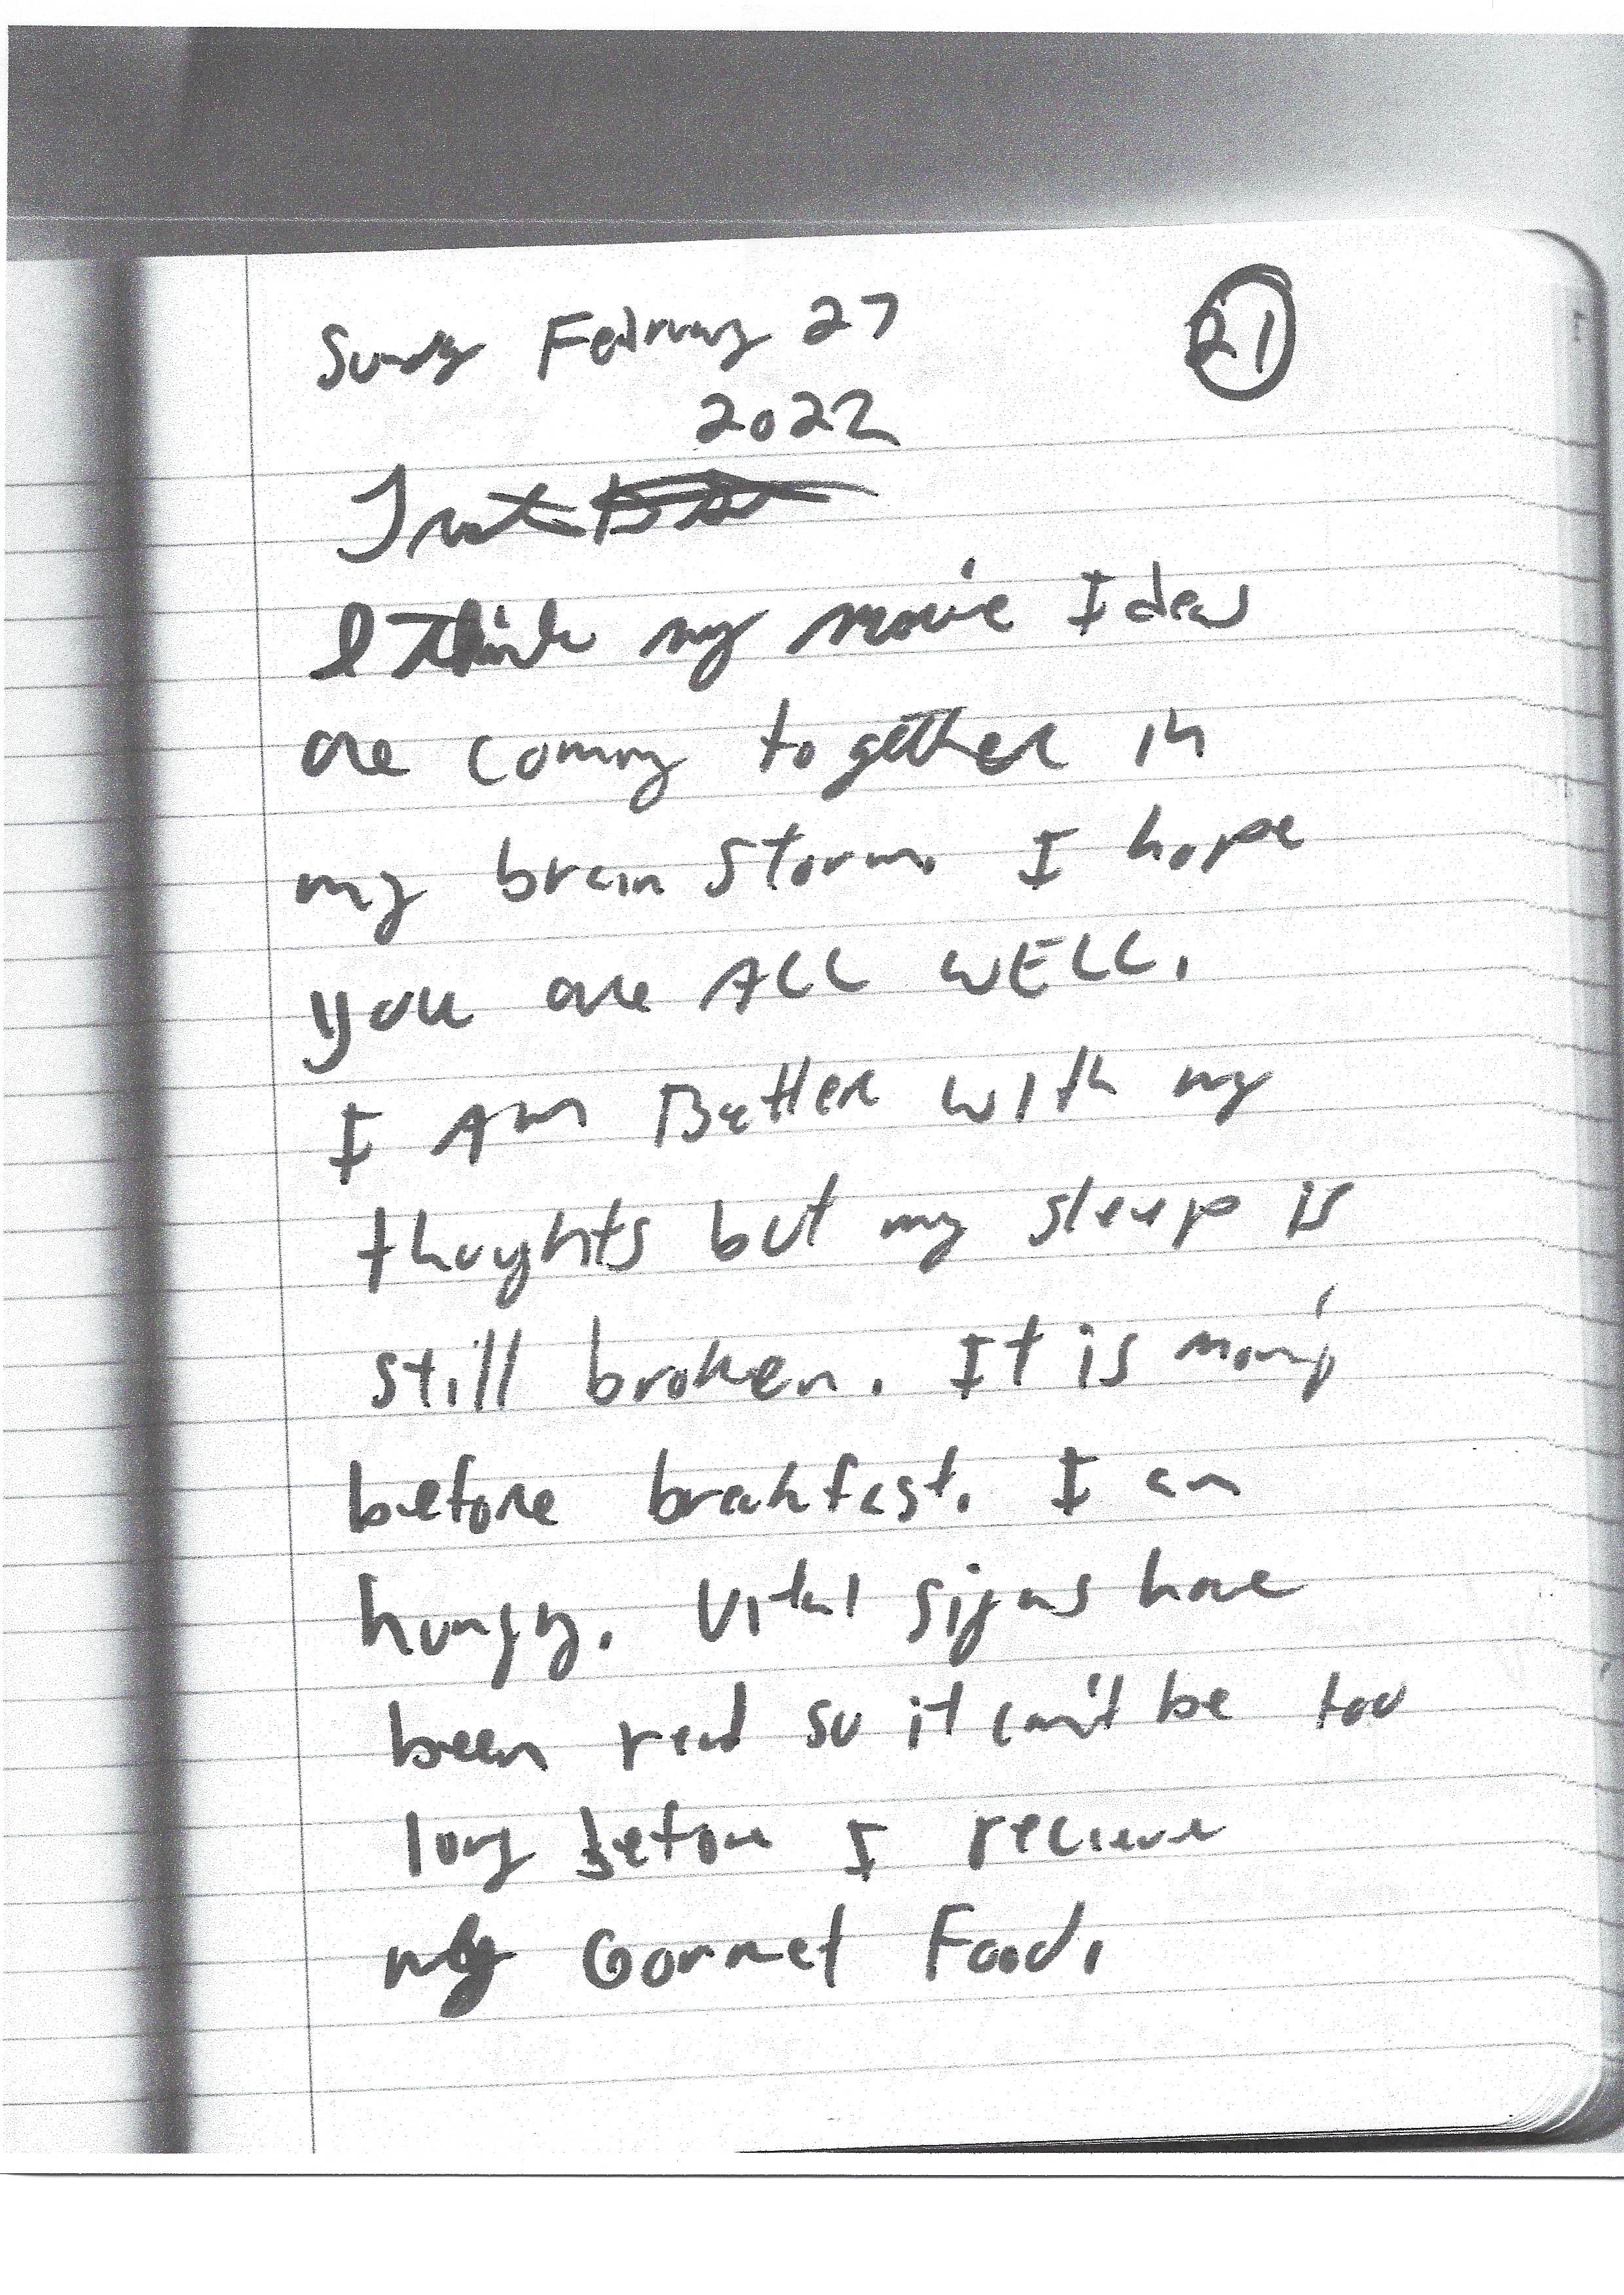 Sunday February 27 21
2022
I think my movie Ideas
are coming together in
my brain storm. I hope
you are ALL WELL.
I Am Better with my
thoughts but my sleep is
still broken. It is morning
before breakfast. I am
hungry. Vital signs have
been read so it can't be too
long before I recieve
my Gormet Food.